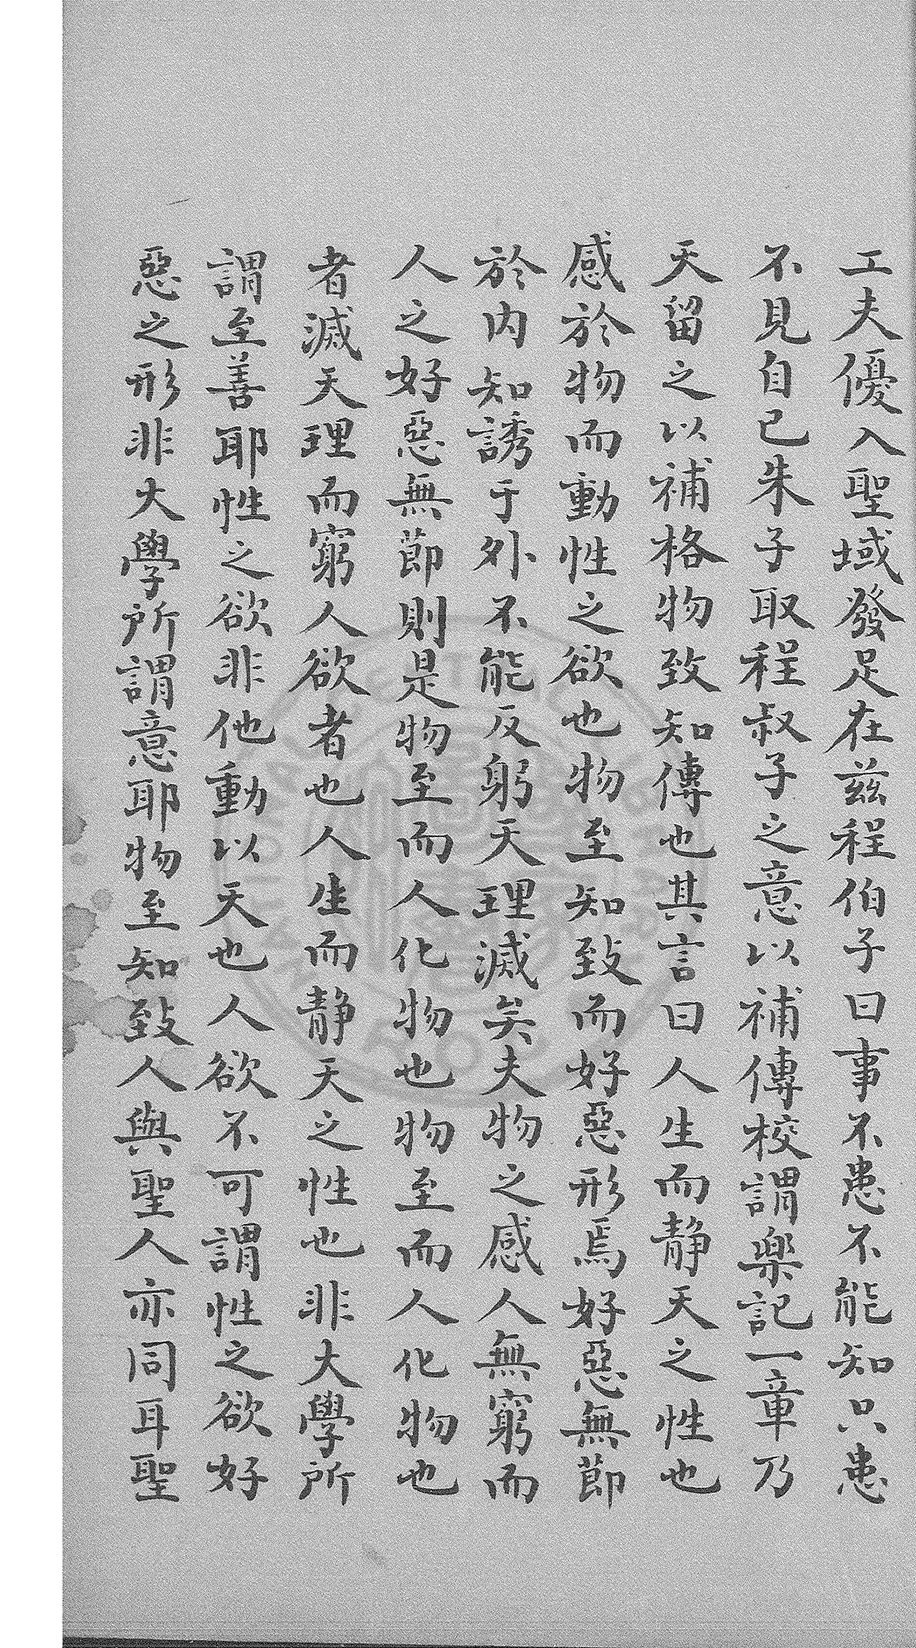 工夫優入聖域發足在茲程伯子曰事不患不能知只患
不見自已朱子取程叔子之意以補傳校謂樂記一章乃
天留之以補格物致知傳也其言曰人生而靜天之性也
感於物而動性之欲也物至知致而好惡形焉好惡無節
於內知誘于外不能反躬天理滅矣夫物之感人無窮而
人之好惡無節則是物至而人化物也物至而人化物也
者滅天理而窮人欲者也人生而靜天之性也非大學所
謂至善耶性之欲非他動以天也人欲不可謂性之欲好
惡之形非大學所謂意耶物至知致人與聖人亦同耳聖